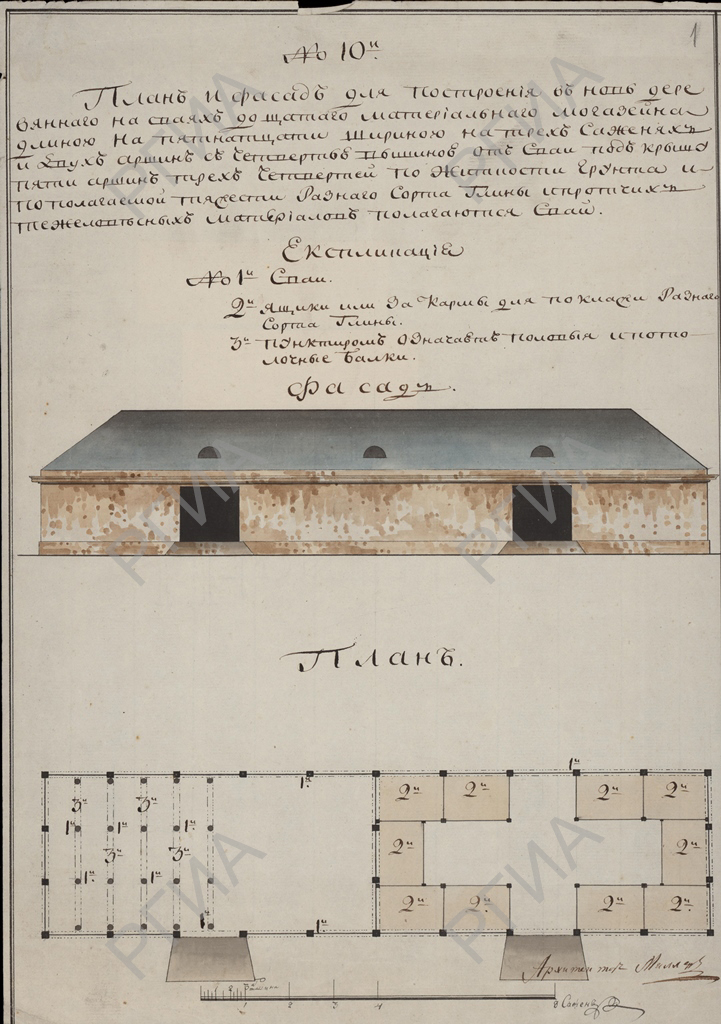 1
№ 10й.
Планъ и фасадъ для построенія въ новь дере
вяннаго на сваяхъ дощатаго матеріальнаго могазейна
длиною на пятинатцати шириною на трехъ саженяхъ
и двухъ аршинъ съ четвертью вышиною отъ сваи подъ крышу
пяти аршинъ трехъ четвертей по житкости грунта и
пополагаемой тяжести разнаго сорта глины и протчихъ
тяжеловѣсныхъ матеріаловъ полагаются сваи.
Експликація
№ 1й Сваи.
2й Ящики или закармы для поклажи разнаго
сорта глины.
3й пунктиромъ означаетъ половыя и пото
лочные балки.
Фасадъ.
Планъ.
1й
1й
2й 2й 2й 2й
3й 3й
1й 1й 1й
3й 3й
2й 2й
1й 1й
2й 2й 2й 2й
1й 1й
Архитекторъ Миллеръ
1 2 3 4 8 Саженъ
РГИА
РГИА
РГИА
РГИА
РГИА
РГИА